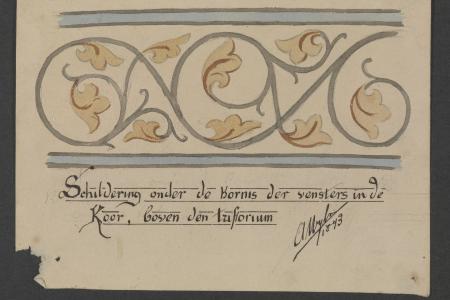 Schildering onder de kornis der vensters in de
Koor, boven den triforium
1893